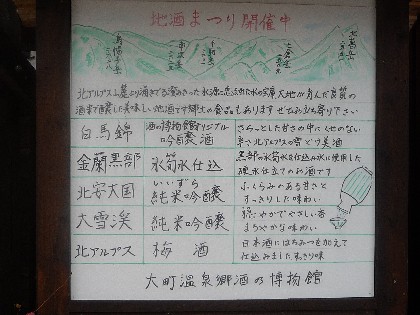 地酒まつり開催中
北アルプス山麓より湧きでる澄みきった水
酒米で醸した美味しい地酒です郷土の食品もあります ぜひお立ち寄り下さい
白馬錦
酒の博物館オリジナル
吟醸酒
さらっとした甘さの中にくせのない
辛さ北アルプスの雪どけ美酒
金蘭黒部
氷筍水仕込
黒部の氷筍水を仕込み水に使用した
硬水仕立てのお酒です
北安大国
いいずら
純米吟醸
ふくらみのある甘さと
すっきりした味わい
大雪渓
純米吟醸
穏やかでやさしい香
まろやかな味わい
北アルプス
梅酒
日本酒にはちみつを加えて
仕込みました すっきり味
大町温泉郷酒の博物館